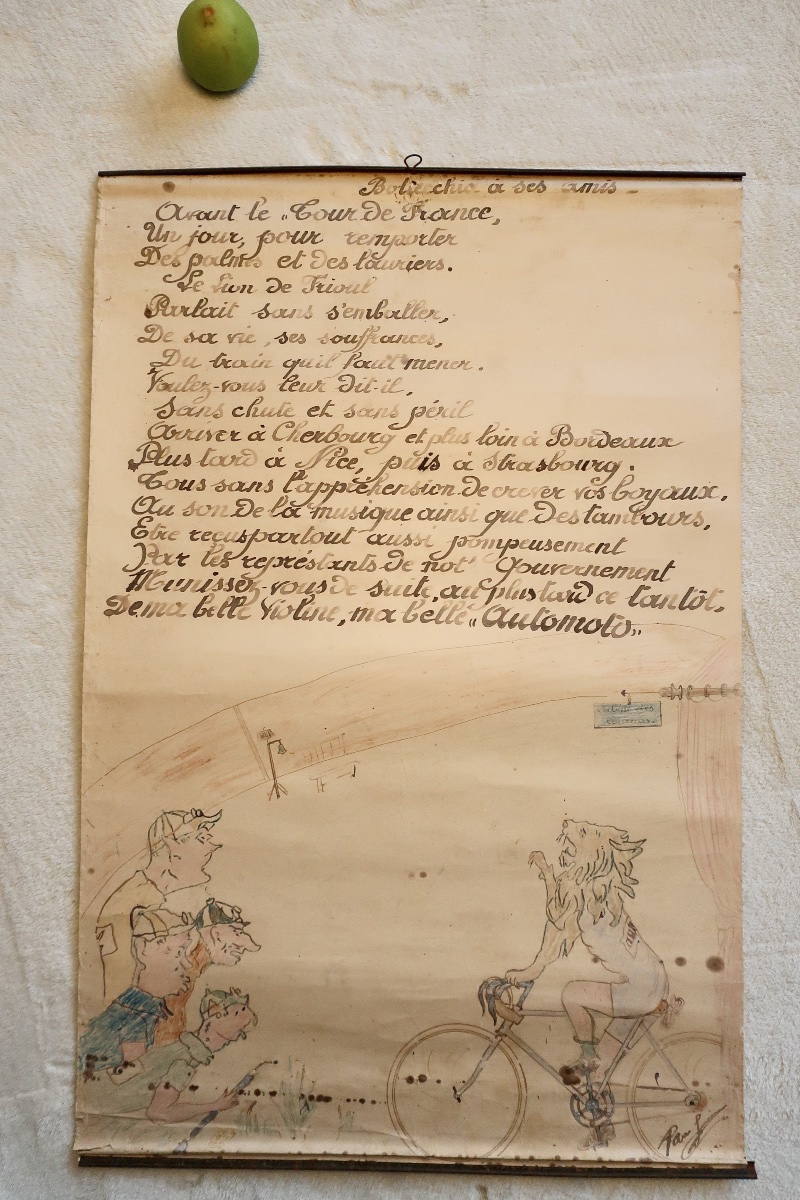 Bottecchia à ses amis -
Avant le "Tour de France,
Un jour, pour remporter
Des palmes et des lauriers.
Le Lion de Frioul
Parlait sans s'emballer,
De sa vie, ses souffrances,
Du train qu'il faut mener.
Voulez-vous leur dit-il,
Sans chute et sans péril
Arriver à Cherbourg et plus loin à Bordeaux
Plus tard à Nice, puis à Strasbourg.
Tous sans l'appréhension de crever vos boyaux,
Au son de la musique ainsi que des tambours,
Etre reçus partout aussi pompeusement
Par les représtants de not' Gouvernement
Munissez-vous de suite, au plus tard ce tantôt,
De ma belle Violine, ma belle "Automoto"